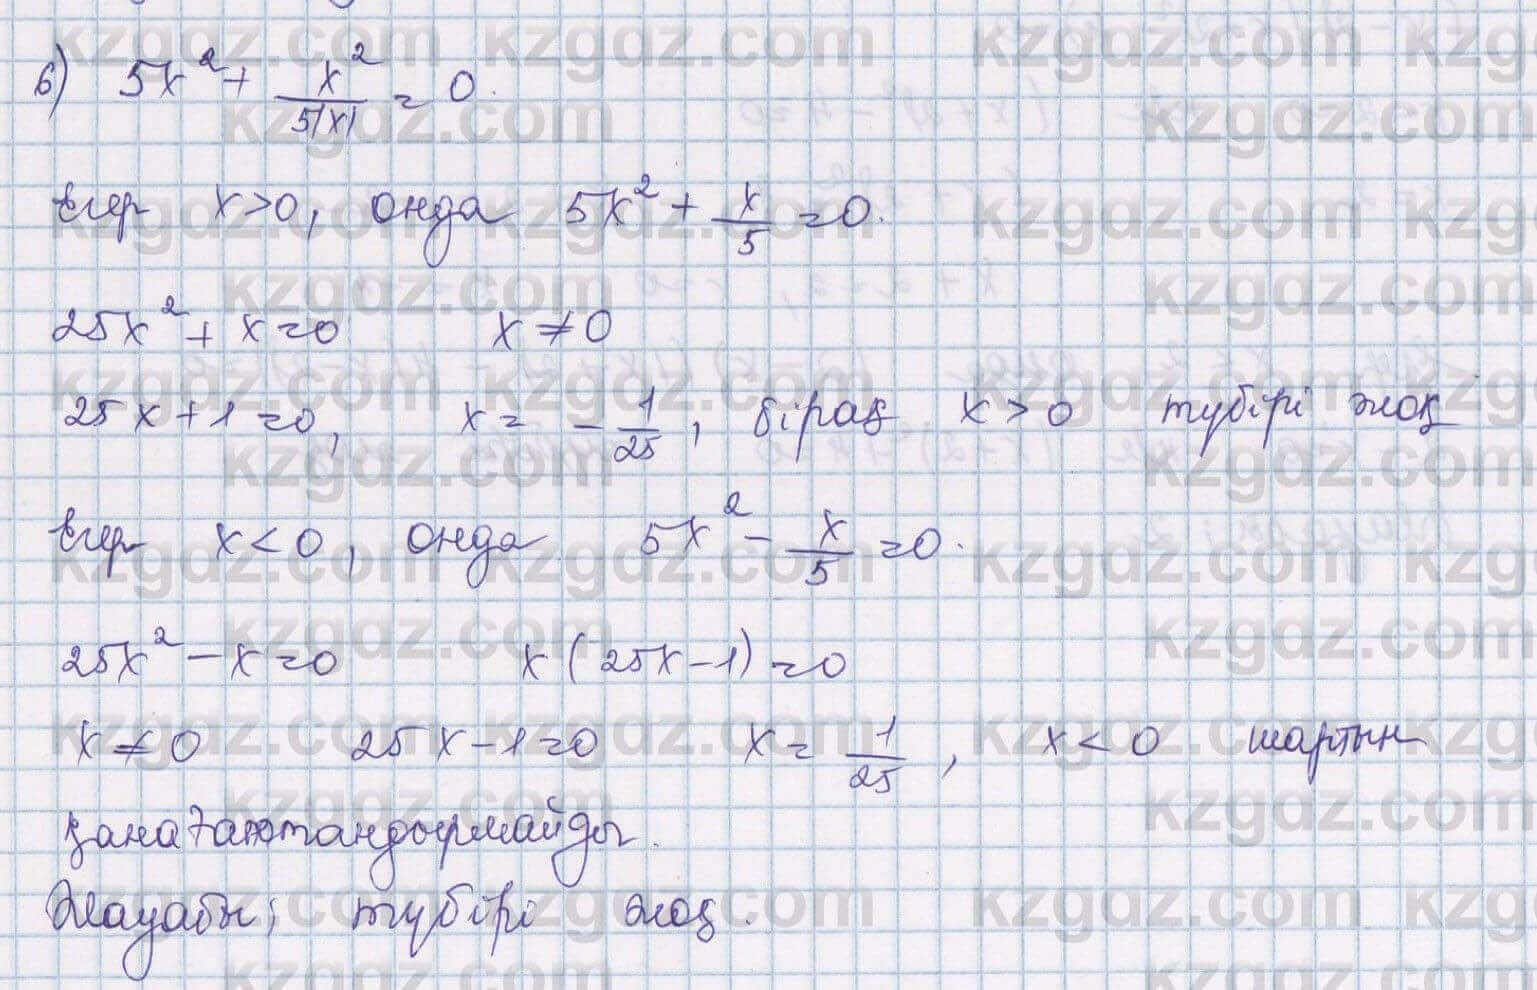 6) 5x² + x²/5|x| = 0.
Егер x>0, онда 5x² + x/5 = 0.
25x² + x = 0 x ≠ 0
25x + 1 = 0, x = - 1/25, бірақ x > 0 түбірі жоқ
Егер x < 0, онда 5x² - x/5 = 0.
25x² - x = 0 x(25x - 1) = 0
x ≠ 0 25x - 1 = 0 x = 1/25, x < 0 шартын
Жауабы; түбірі жоқ.
kzgdz.com